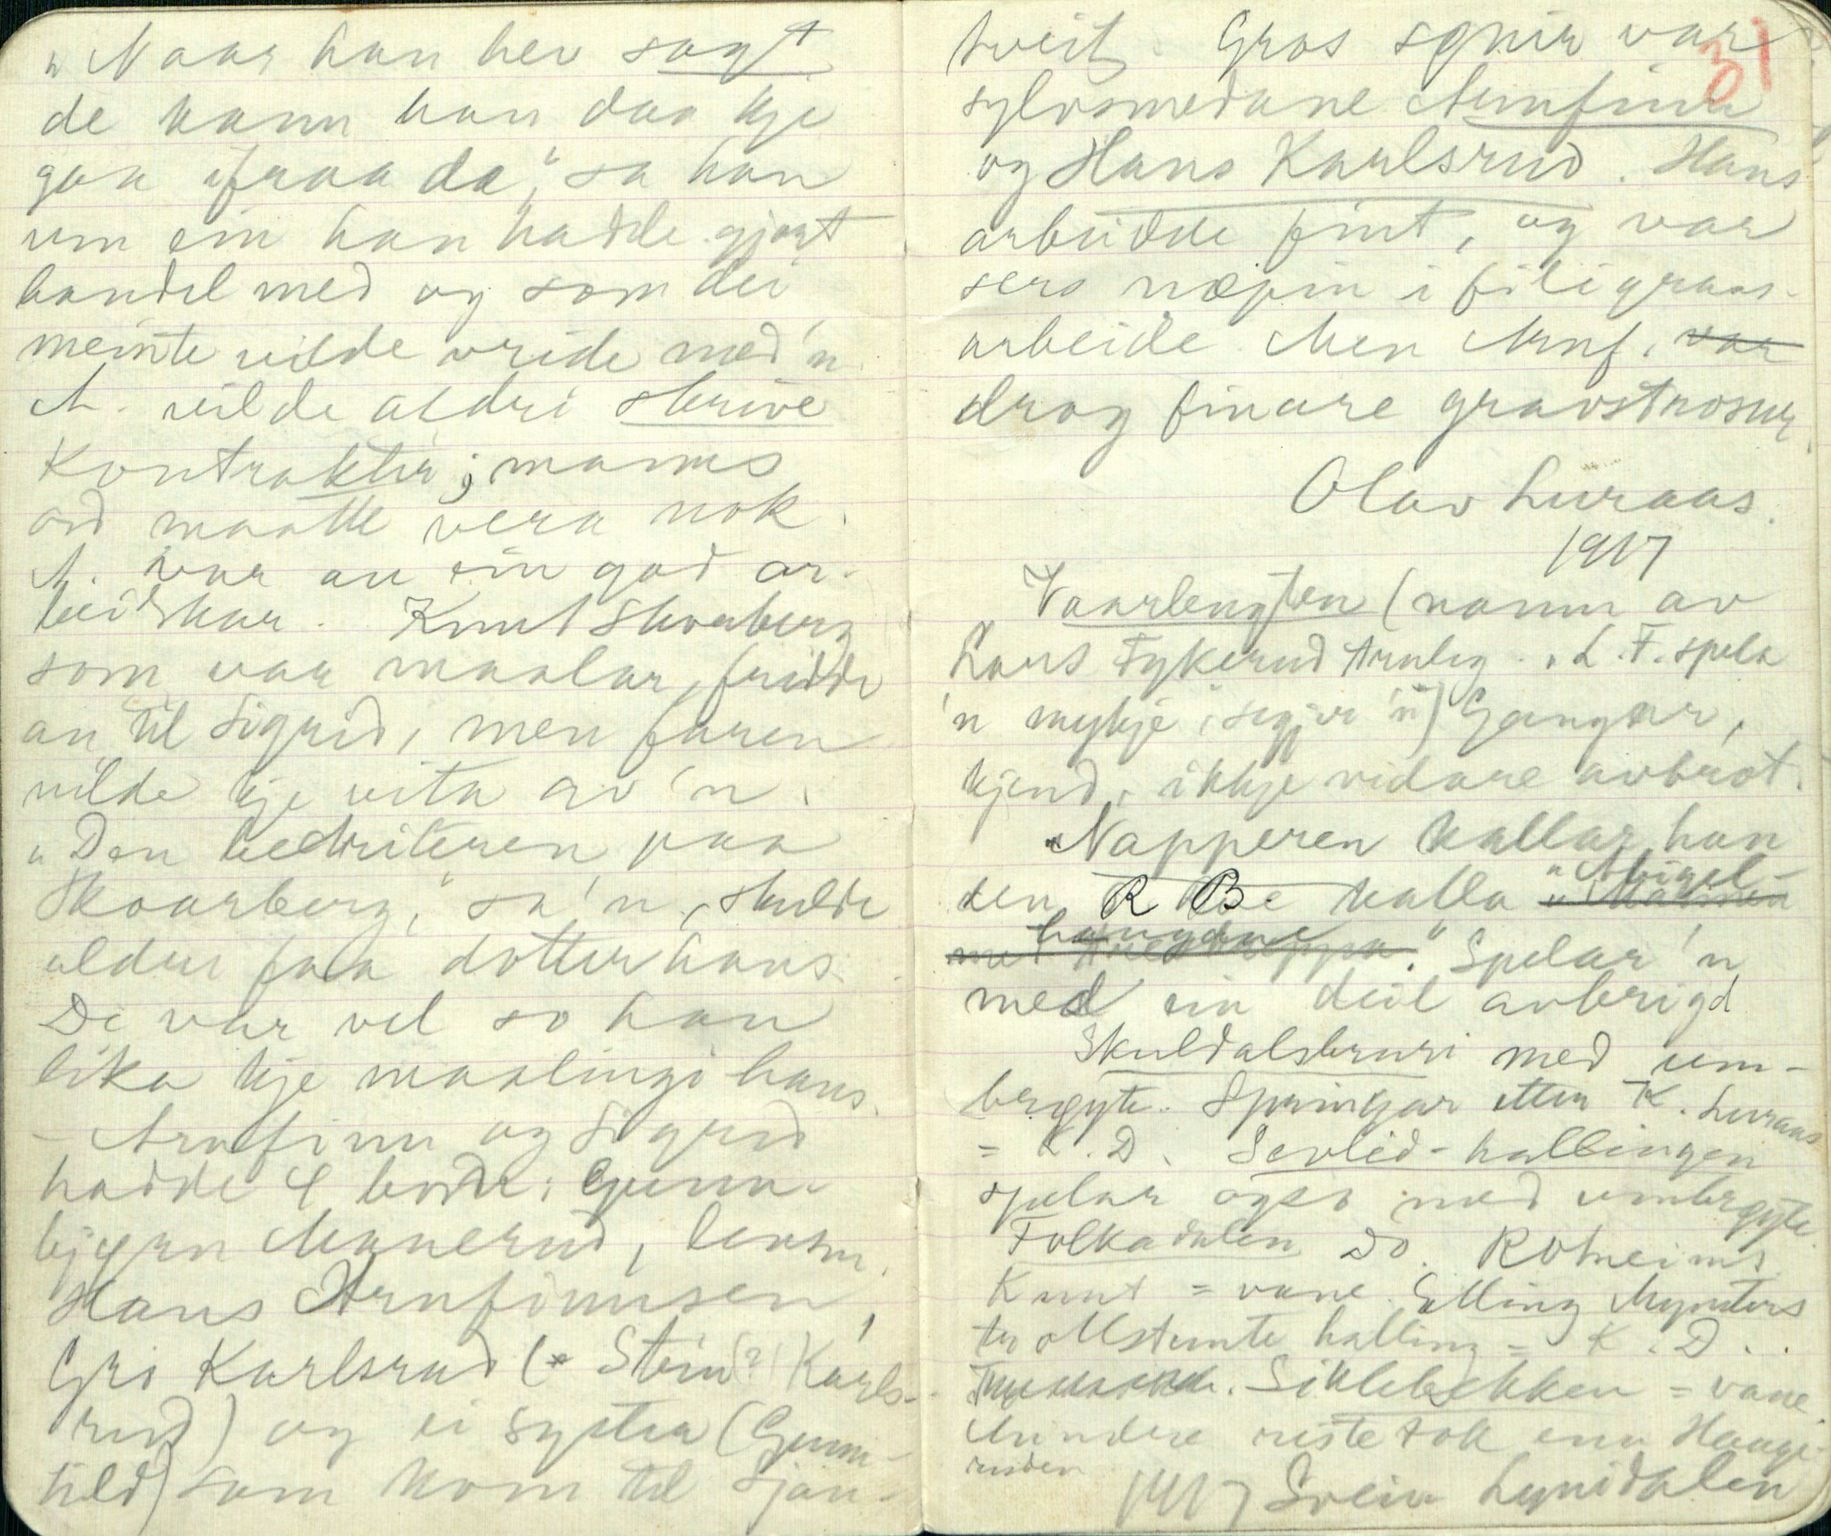 „Naar han hev sagt
de kann han daa kje
gaa ifraa da," sa han
um ein han hadde gjort
handel med og som dei
meinte vilde vride med 'n
A. vilde aldri skrive
Kontraktir; manns
ord maatte vera nok.
A. var au ein god ar-
beidskar. Knut Skvarberg
som var maalar, fridde
au til Sigrid, men faren
vilde kje vita av 'n.
„Den bedriteren paa
Skoarberg," sa 'n, skulde
aldri faa dotter hans
De var vel so han
lika kje maalingi hans.
- Arnfinn og Sigrid
hadde 4 bodn: Gunn-
bjørn Manerud, lensm.
Hans Arnfinnsen,
Gro Karlsrud (* Stein(?) Karls-
rud) og ei syster (Gunn-
hild) som kom til Sjau-
tveit. Gros synir var
31
sylvsmedane Arnfinn
og Hans Karlsrud. Hans
arbeidde fint, og var
sers næpin i filigraas-
arbeide Men Arnf. var
drog finare gravstrosur.
Olav Luraas.
1917
Vaarlengten (namn av
Lars Fykerud truleg. „L. F. spela
'n mykje", segjer 'n) Gangar,
kjend, ikkje vidare avbrot.
„Napperen kallar han
den R B kalla „Abigel-
haugane" Spelar 'n
med ein deil avbrigd
Skuldalsbruri med um-
brøyte. Springar etter K. Luraas
= K. D. Sevlid-hallingen
spelar ogso med umbrøyte.
Folkadalen Do. Rotneims
Knut = vane. Elling Mynters
trollstemte halling = K. D..
Siklebekken = vane.
Mindre ristetok enn Hauge-
rusden
1917 Svein Lynidalen